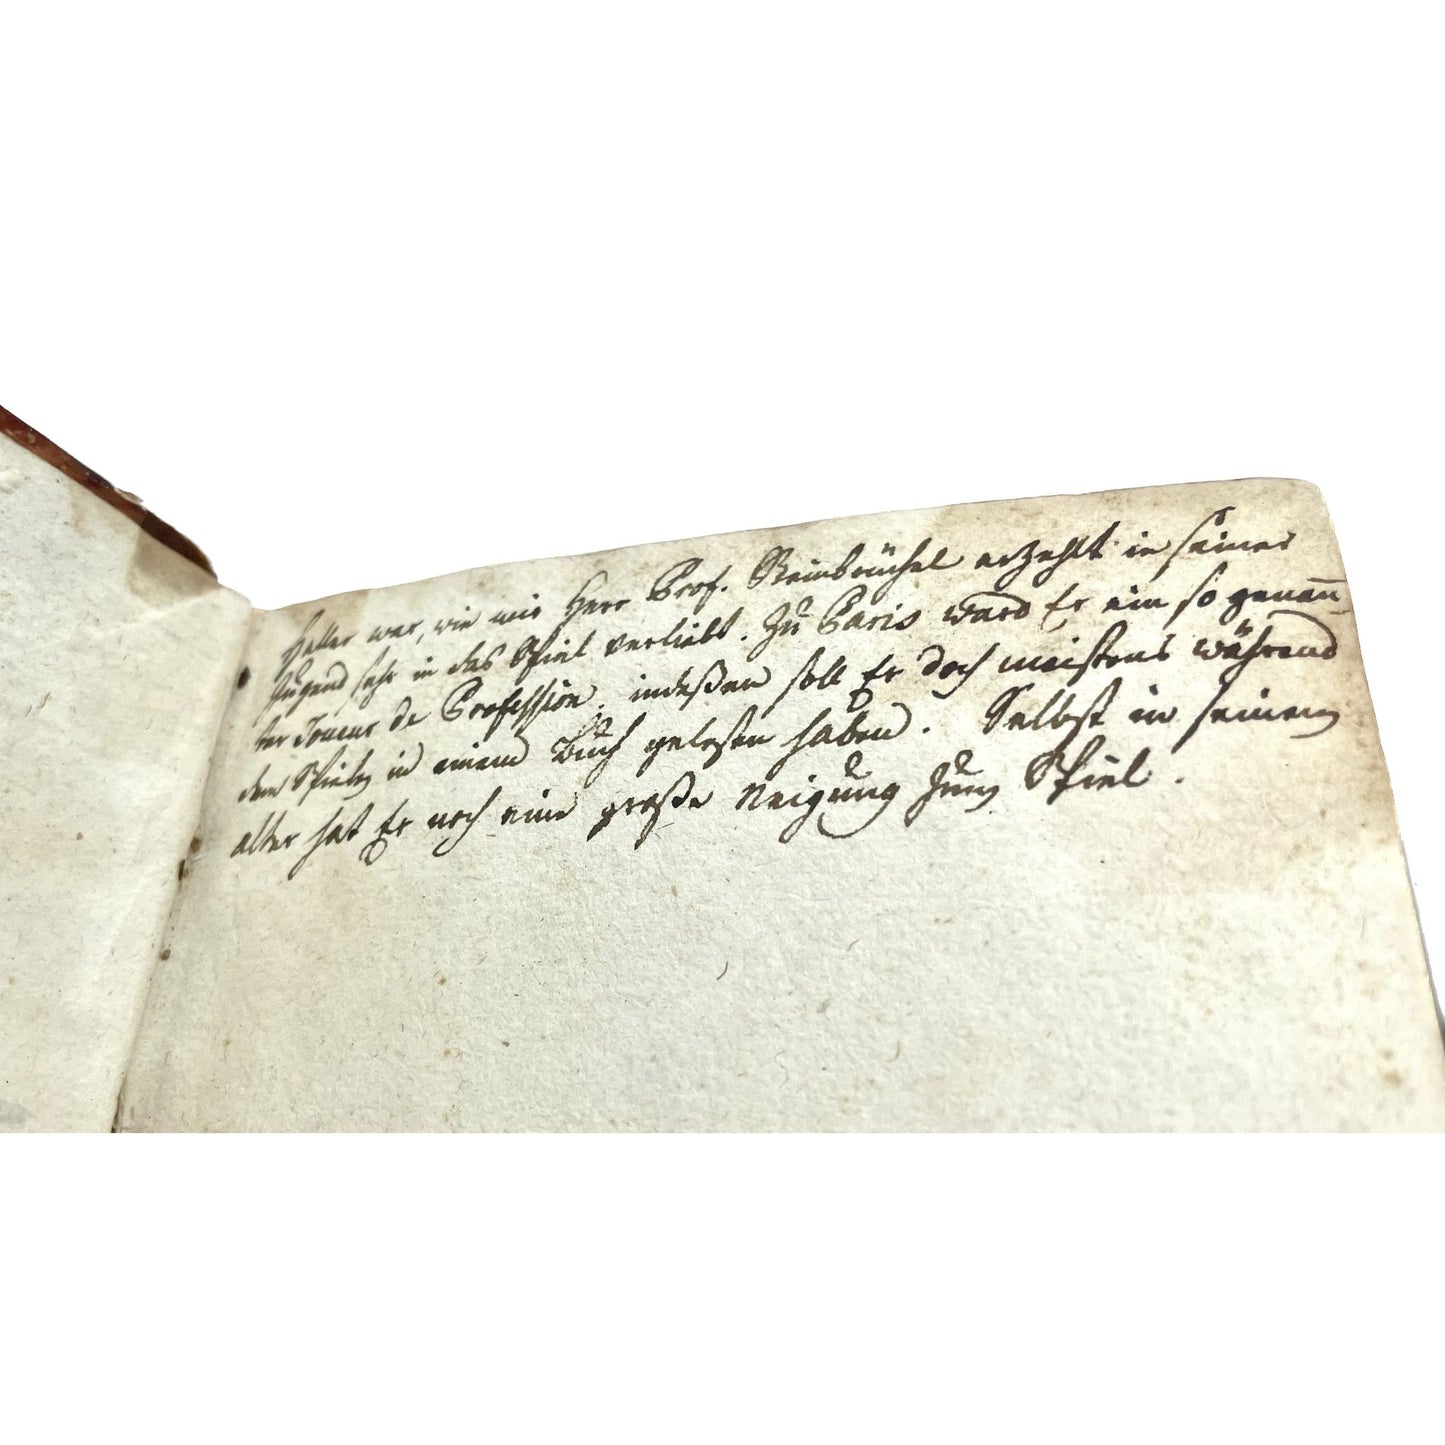 Haller war, wie mir Herr Prof. Steinbrüchel erzehlt in seiner
Jugend sehr in das Spiel verliebt. Zu Paris ward Er ein so genan̅
ter Joueur de Profession, indeßen soll Er doch meistens während
dem Spielen in einem Buch gelesen haben. Selbst in seinem
alter hat Er noch eine große Neigung zum Spiel.